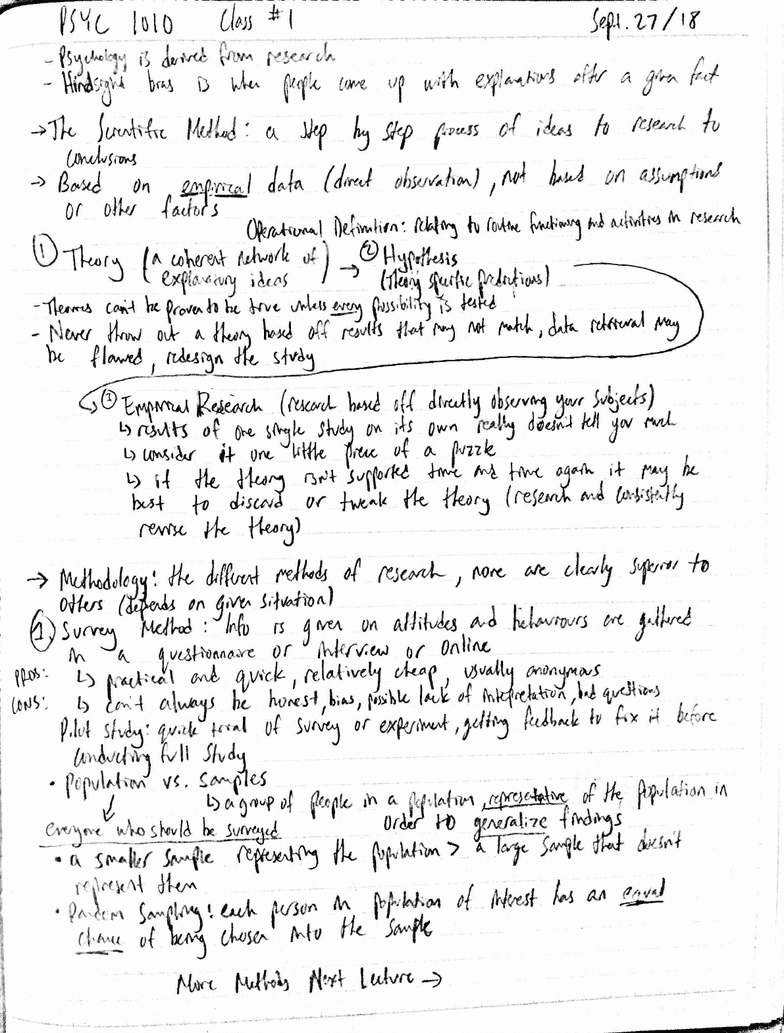 PSYC 1010 Class #1 Sept. 27/18
- Psychology is derived from research
- Hindsight bias is when people come up with explanations after a given fact
→ The Scientific Method: a step by step process of ideas to research to
conclusions
→ Based on empirical data (direct observation), not based on assumptions
or other factors
Operational Definition: relating to routine functioning and activities in research
① Theory (a coherent network of explanatory ideas) → ② Hypothesis
(Theory specific predictions)
- Theories can't be proven to be true unless every possibility is tested
- Never throw out a theory based off results that may not match, data retrieval may
be flawed, redesign the study
③ Empirical Research (research based off directly observing your subjects)
↳ results of one single study on its own really doesn't tell you much
↳ consider it one little piece of a puzzle
↳ if the theory isn't supported time and time again it may be
best to discard or tweak the theory (research and consistently
revise the theory)
→ Methodology: the different methods of research, none are clearly superior to
others (depends on given situation)
①. Survey Method: Info is given on attitudes and behaviours are gathered
in a questionnaire or interview or online
PROS: ↳ practical and quick, relatively cheap, usually anonymous
CONS: ↳ can't always be honest, bias, possible lack of intepretation, bad questions
Pilot study: quick trial of survey or experiment, getting feedback to fix it before
conducting full study
• Population vs. Samples
↳ a group of people in a population, representative of the population in
order to generalize findings
everyone who should be surveyed
• a smaller sample representing the population > a large sample that doesn't
represent them
• Random Sampling: each person in population of interest has an equal
chance of being chosen into the sample
More Methods Next Lecture →